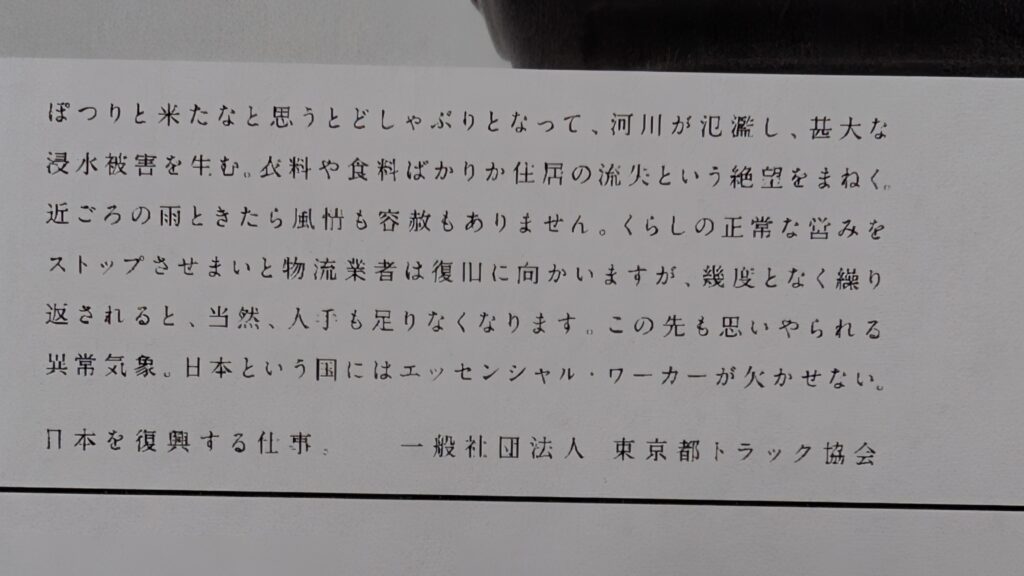 ぽつりと来たなと思うとどしゃぶりとなって、河川が氾濫し、甚大な
浸水被害を生む。衣料や食料ばかりか住居の流失という絶望をまねく。
近ごろの雨ときたら風情も容赦もありません。くらしの正常な営みを
ストップさせまいと物流業者は復旧に向かいますが、幾度となく繰り
返されると、当然、人手も足りなくなります。この先も思いやられる
異常気象。日本という国にはエッセンシャル・ワーカーが欠かせない。
日本を復興する仕事。 一般社団法人 東京都トラック協会